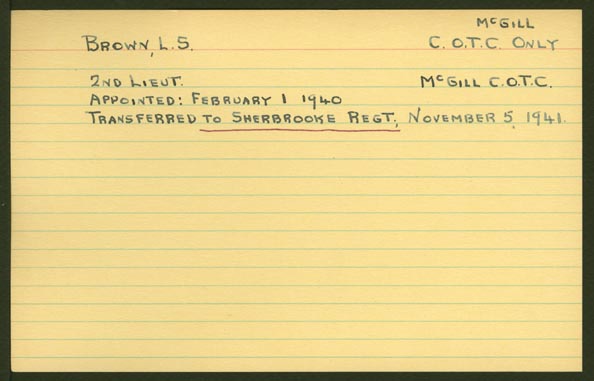 McGILL
BROWN, L.S. C.O.T.C. ONLY
2ND LIEUT. McGILL C.O.T.C.
APPOINTED: FEBRUARY 1 1940
TRANSFERRED TO SHERBROOKE REGT, NOVEMBER 5, 1941.